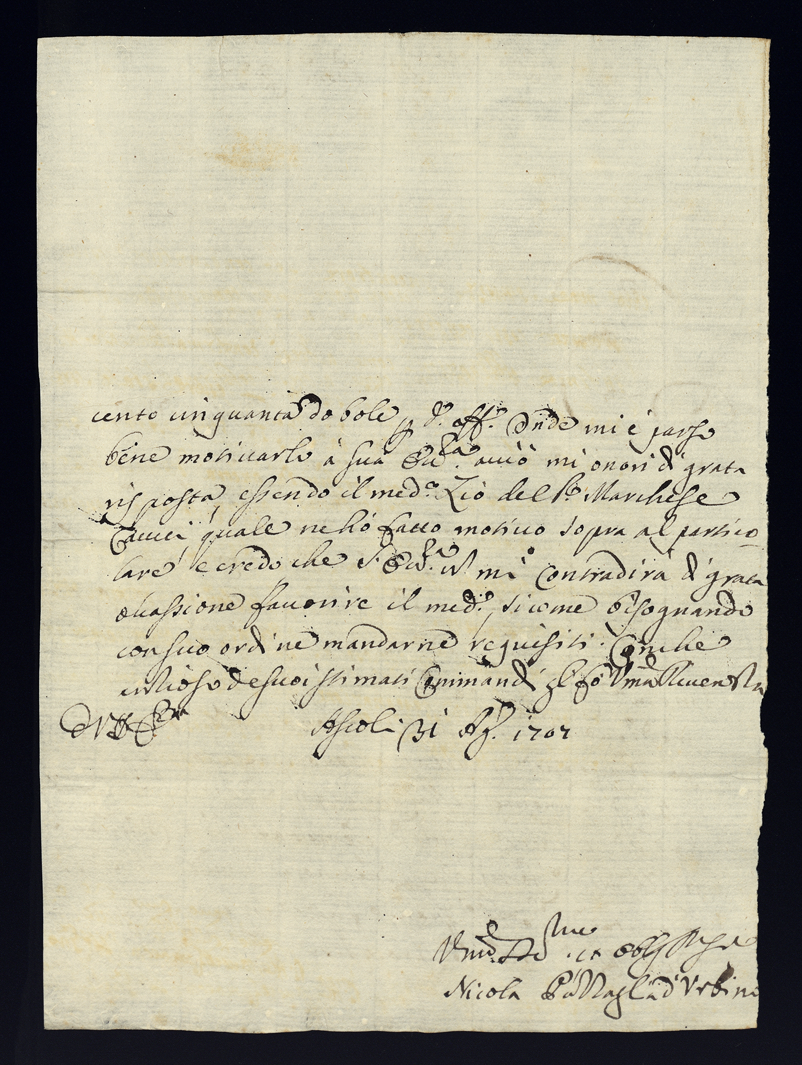 cento cinquanta dobole p d.o off.o Onde mi è parso
bene motivarlo à sua Ecc.za acciò mi onori di grata
risposta essendo il med.o Zio del S.r Marchese
Cauci quale ne hò fatto motivo sopra al partico
lare è credo che S. Ecc.za mi contradirà di grata
ocassione favorire il med.o, sicome bisognando
con suo ordine mandarne requisiti. Con che
ansioso de suoi stimati Comandi fò Um.a Riverenza
D V Ecc.za Ascoli 31 Ag.o 1707
Um.o Dev.mo et Obl.
Nicola Battaglia d'Urbino